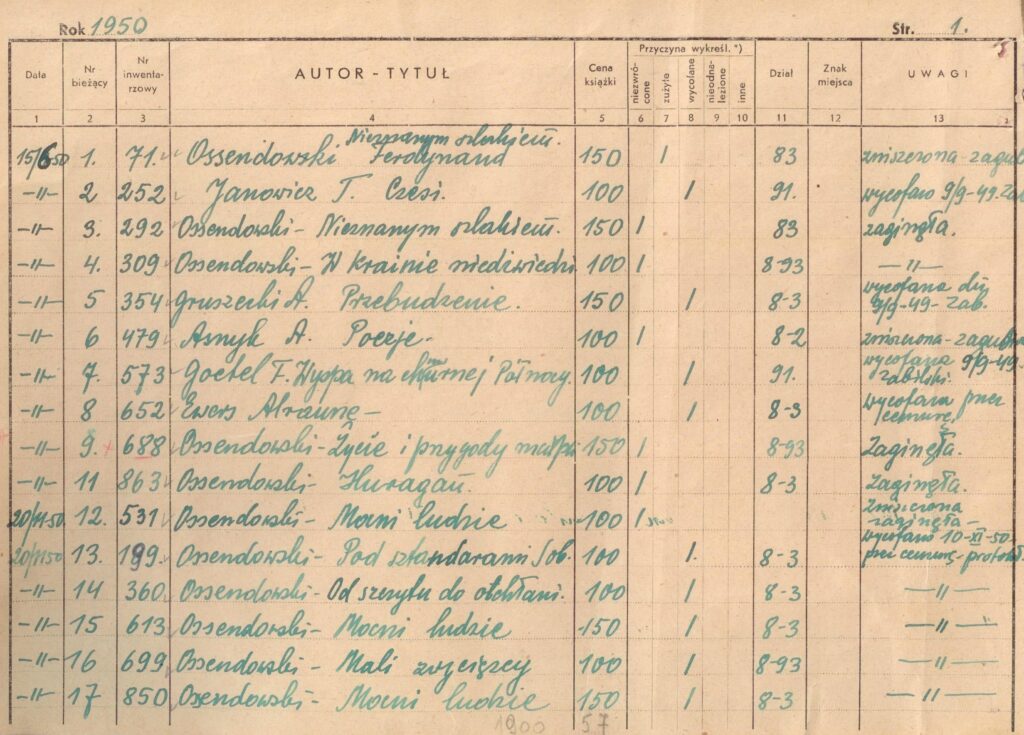 Rok 1950 Str. 1.
Data Nr bieżący Nr inwentarzowy AUTOR - TYTUŁ Cena książki Przyczyna wykreśl. *) niezwrócone zużyte wycofane nieodnalezione inne Dział Znak miejsca UWAGI
1 2 3 4 5 6 7 8 9 10 11 12 13
Nieznanym szlakiem.
15/6 50 1. 71. Ossendowski Ferdynand 150 / 83 zniszczona - zagub
-"- 2 252 Janowicz T. Czesi. 100 / 91. wycofano 9/9-49. Zab
-"- 3. 292 Ossendowski - Nieznanym szlakiem. 150 / 83 zaginęła.
-"- 4. 309 Ossendowski - W krainie niedźwiedzi 100 / 8-93 -"-
-"- 5 354 Gruszecki A. Przebudzenie. 150 / 8-3 wycofana 9/9-49- Zab.
-"- 6 479 Asnyk A. Poezje. 100 / 8-2 zniszczona - zagub
-"- 7. 573 Goetel F. Wyspa na chmurnej Północy. 100 / 91. wycofana 9/9-49- Zabilski.
-"- 8 652 Ewers Alraune - 100 / 8-3 wycofana przez cenzurę
-"- 9. 688 Ossendowski - Życie i przygody małpki 150 / 8-93 Zaginęła.
-"- 11 863 Ossendowski - Huragan. 100 / 8-3 Zaginęła.
20/11-50. 12. 531 Ossendowski - Mocni ludzie 100 / Zniszczona zaginęła -
20/11 50 13. 199. Ossendowski - Pod sztandarami Sob. 100 / 8-3 wycofano 10-XI-50- przez cenzurę - protok
-"- 14 360 Ossendowski - Od szczytu do otchłani. 100 / 8-3 -"-
-"- 15 613 Ossendowski - Mocni ludzie 150 / 8-3 -"-
-"- 16 699 Ossendowski - Mali zwycięzcy 100 / 8-93 -"-
-"- 17 850 Ossendowski - Mocni ludzie 150 / 8-3 -"-
1900 57